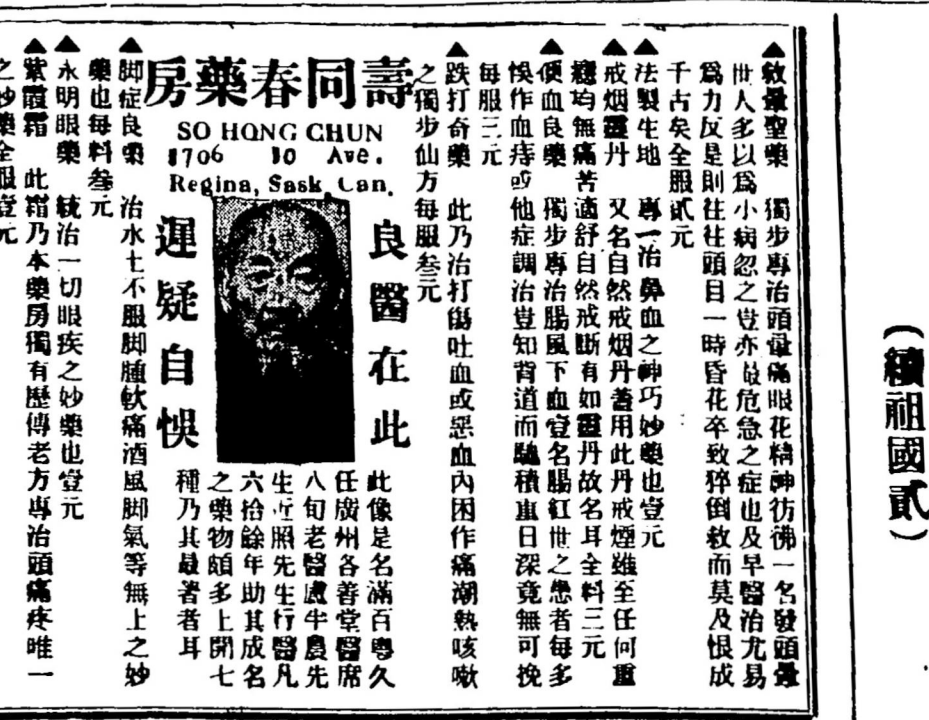 （續祖國貳）
▲救暈聖藥　獨步專治頭暈痛眼花精神彷彿一名發頭暈
世人多以爲小病忽之豈亦最危急之症也及早醫治尤易
爲力反是則往往頭目一時昏花卒致猝倒救而莫及恨成
千古矣全服貳元
▲法製生地　專一治鼻血之神巧妙藥也壹元
▲戒烟靈丹　又名自然戒烟丹蓋用此丹戒煙雖至任何重
癮均無痛苦適舒自然戒斷有如靈丹故名耳全料三元
▲便血良藥　獨步專治腸風下血壹名腸紅世之患者每多
悞作血痔或他症調治豈知背道而馳積重日深竟無可挽
每服三元
▲跌打奇藥　此乃治打傷吐血或惡血內困作痛潮熱咳嗽
之獨步仙方每服叁元
壽同春藥房
SO HONG CHUN
1706 10 Ave.
Regina, Sask. Can.
良醫在此
遲疑自悞
此像是名滿百粵久
任廣州各善堂醫席
八旬老醫盧牛農先
生近照先生行醫凡
六拾餘年助其成名
之藥物頗多上開七
種乃其最著者耳
▲脚症良藥　治水土不服脚腫軟痛酒風脚氣等無上之妙
藥也每料叁元
▲永明眼藥　統治一切眼疾之妙藥也壹元
▲紫霞霜　此霜乃本藥房獨有歷傳老方專治頭痛疼唯一
之妙藥全服壹元